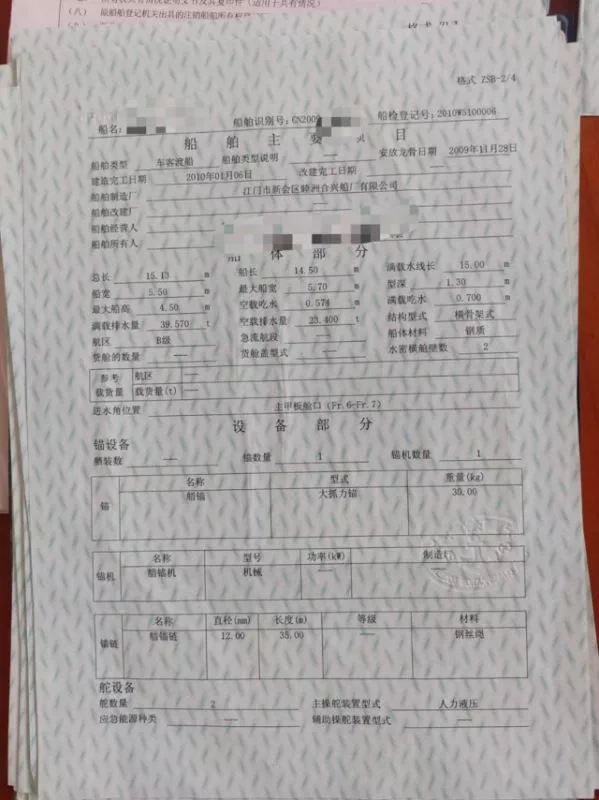 （八） 原船舶登记机关出具的注销船舶所有权
格式 ZSB-2/4
船名： 船舶识别号：CN2009 船检登记号：2010W5100006
船 舶 主 要 项 目
船舶类型 车客渡船 船舶类型说明 —— 安放龙骨日期 2009年11月28日
建造完工日期 2010年01月06日 改建完工日期 ——
船舶制造厂 江门市新会区睦洲合兴船厂有限公司
船舶改建厂
船舶经营人
船舶所有人
船 体 部 分
总长 15.13 m 船长 14.50 m 满载水线长 15.00 m
船宽 5.50 m 最大船宽 5.70 m 型深 1.30 m
最大船高 4.50 m 空载吃水 0.574 m 满载吃水 0.700 m
满载排水量 39.570 t 空载排水量 23.400 t 结构型式 横骨架式
航区 B级 急流航段 —— 船体材料 钢质
货舱的数量 —— 货舱盖型式 —— 水密横舱壁数 2
参考 航区 ——
载货量 载货量(t) ——
进水角位置 主甲板舱口 (Fr.6-Fr.7)
设 备 部 分
锚设备
舾装数 —— 锚数量 1 锚机数量 1
名称 型式 重量(kg)
锚 艏锚 大抓力锚 30.00
名称 型号 功率(kW) 制造厂
锚机 艏锚机 机械 ——
名称 直径(mm) 长度(m) 等级 材料
锚链 艏锚链 12.00 35.00 —— 钢丝绳
舵设备
舵数量 2 主操舵装置型式 人力液压
应急能源种类 —— 辅助操舵装置型式 ——